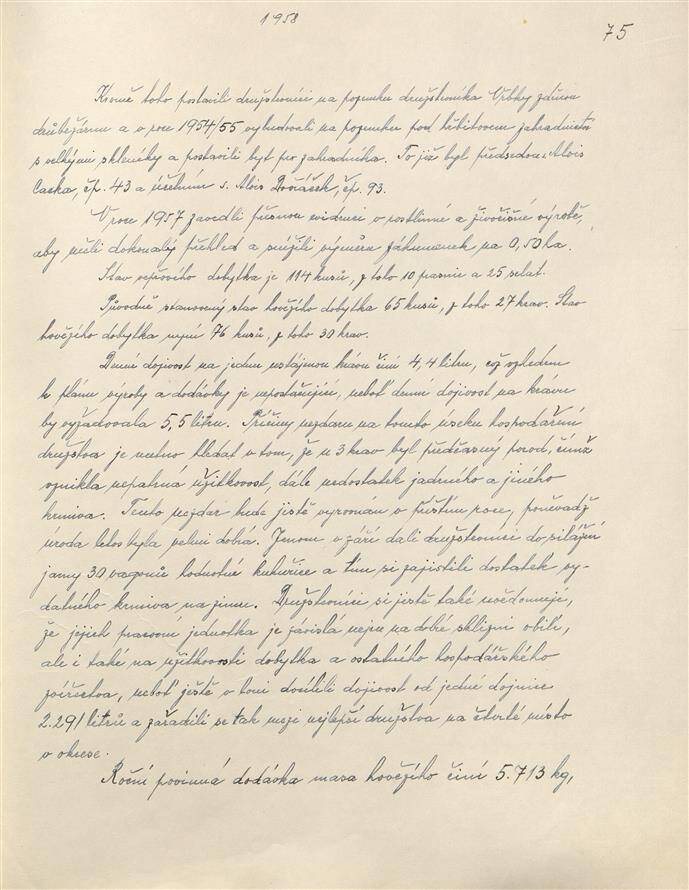 1958
75
Kromě toho postavili družstevníci na pozemku družstevníka Vrbky zděnou
drůbežárnu a v roce 1954/55 vybudovali na pozemku pod hřbitovem zahradnictví
s velkými skleníky a postavili byt pro zahradníka. To již byl předsedou s. Alois
Cacka, čp. 43 a účetním s. Alois Dvořáček, čp. 93.
V roce 1957 zavedli přesnou evidenci v rostlinné a živočišné výrobě,
aby měli dokonalý přehled a snížili výměru záhumenek na 0,50 ha.
Stav vepřového dobytka je 114 kusů, z toho 10 prasnic a 25 selat.
Původně stanovený stav hovězího dobytka 65 kusů, z toho 27 krav. Stav
hovězího dobytka nyní 76 kusů, z toho 30 krav.
Denní dojivost na jednu ustájenou krávu činí 4,4 litru, což vzhledem
k plánu výroby a dodávky je nepostačující, neboť denní dojivost na krávu
by vyžadovala 5,5 litru. Příčiny nezdaru na tomto úseku hospodaření
družstva je nutno hledat v tom, že u 3 krav byl předčasný porod, čímž
vznikla nepatrná užitkovost, dále nedostatek jadrného a jiného
krmiva. Tento nezdar bude jistě vyrovnán v příštím roce, poněvadž
úroda letos byla velmi dobrá. Jenom v září dali družstevníci do silážní
jamy 30 vagonů hodnotné kukuřice a tím si zajistili dostatek vy-
datného krmiva na zimu. Družstevníci si jistě také uvědomují,
že jejich pracovní jednotka je závislá nejen na dobré sklizni obilí,
ale i také na užitkovosti dobytka a ostatního hospodářského
zvířectva, neboť ještě v loni docílili dojivost od jedné dojnice
2.291 litrů a zařadili se tak mezi nejlepší družstva na čtvrté místo
v okrese.
Roční povinná dodávka masa hovězího činí 5.713 kg,